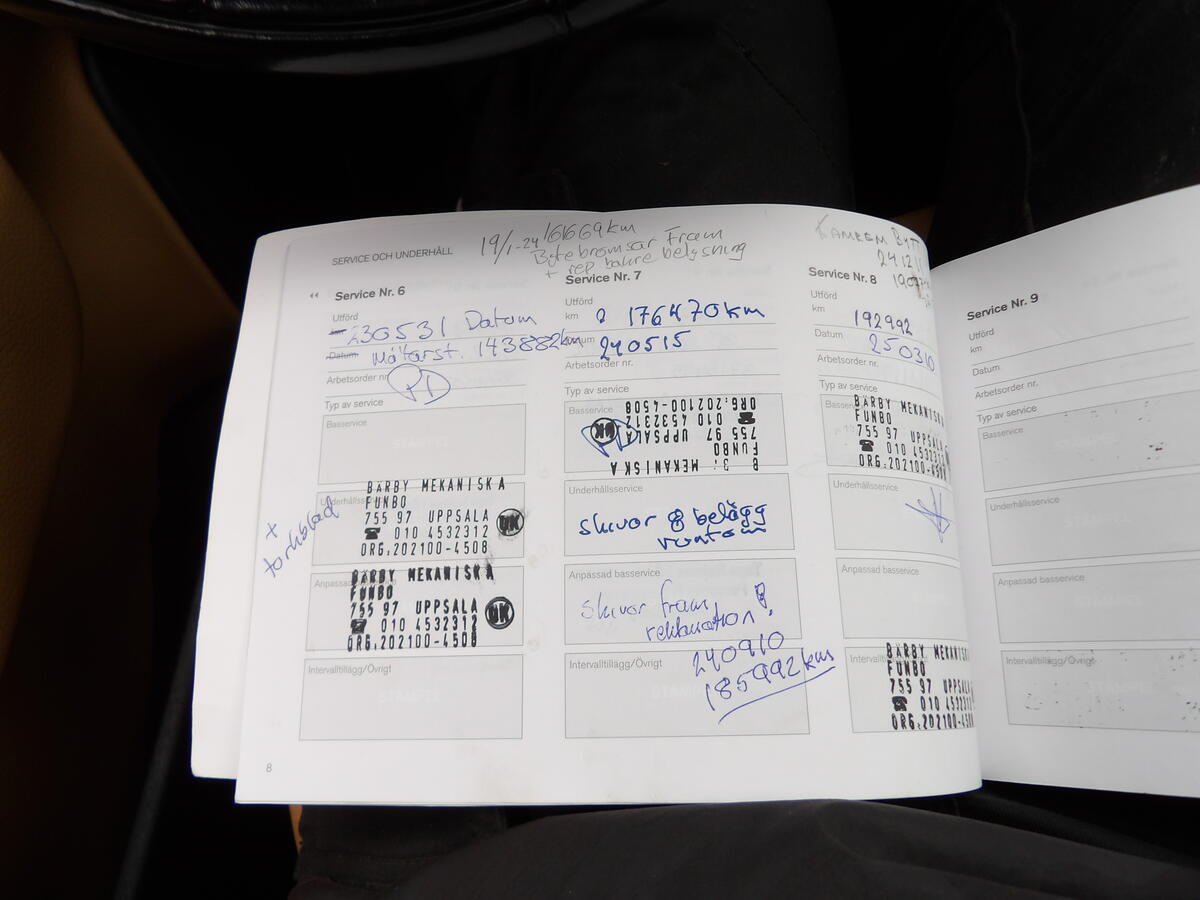 SERVICE OCH UNDERHÅLL
19/1-24 161669km
Byte bromsar Fram
+ rep bakre belysning
Service Nr. 6
Utförd
km
230531 Datum
Datum
Mätarst. 143882km
Arbetsorder nr.
Typ av service
Basservice
STAMPEL
Underhållsservice
BÄRBY MEKANISKA
FUNBO
755 97 UPPSALA
☎ 010 4532312
ORG.202100-4508
OK
+
torkblad
Anpassad
BÄRBY MEKANISKA
FUNBO
755 97 UPPSALA
☎ 010 4532312
ORG.202100-4508
OK
Intervalltillägg/Övrigt
STAMPEL
8
Service Nr. 7
Utförd
km
176470km
Datum
240515
Arbetsorder nr.
Typ av service
Basservice
MEKANISKA
FUNBO
755 97 UPPSALA
☎ 010 4532312
ORG.202100-4508
OK
Underhållsservice
skivor & belägg
runtom
Anpassad basservice
skivor fram
reklamation!
Intervalltillägg/Övrigt
240910
185992km
Kamrem Bytt
2412
Service Nr. 8
Utförd
km
192992
Datum
250310
Arbetsorder nr.
Typ av service
BÄRBY MEKANISK
FUNBO
755 97 UPPSALA
☎ 010 4532312
ORG.202100-4508
Underhållsservice
Anpassad basservice
Intervalltillägg/Övrigt
BÄRBY MEKANISK
FUNBO
755 97 UPPSALA
☎ 010 4532312
ORG.202100-4508
Service Nr. 9
Utförd
km
Datum
Arbetsorder nr.
Typ av service
Basservice
Underhållsservice
Anpassad basservice
Intervalltillägg/Övrigt